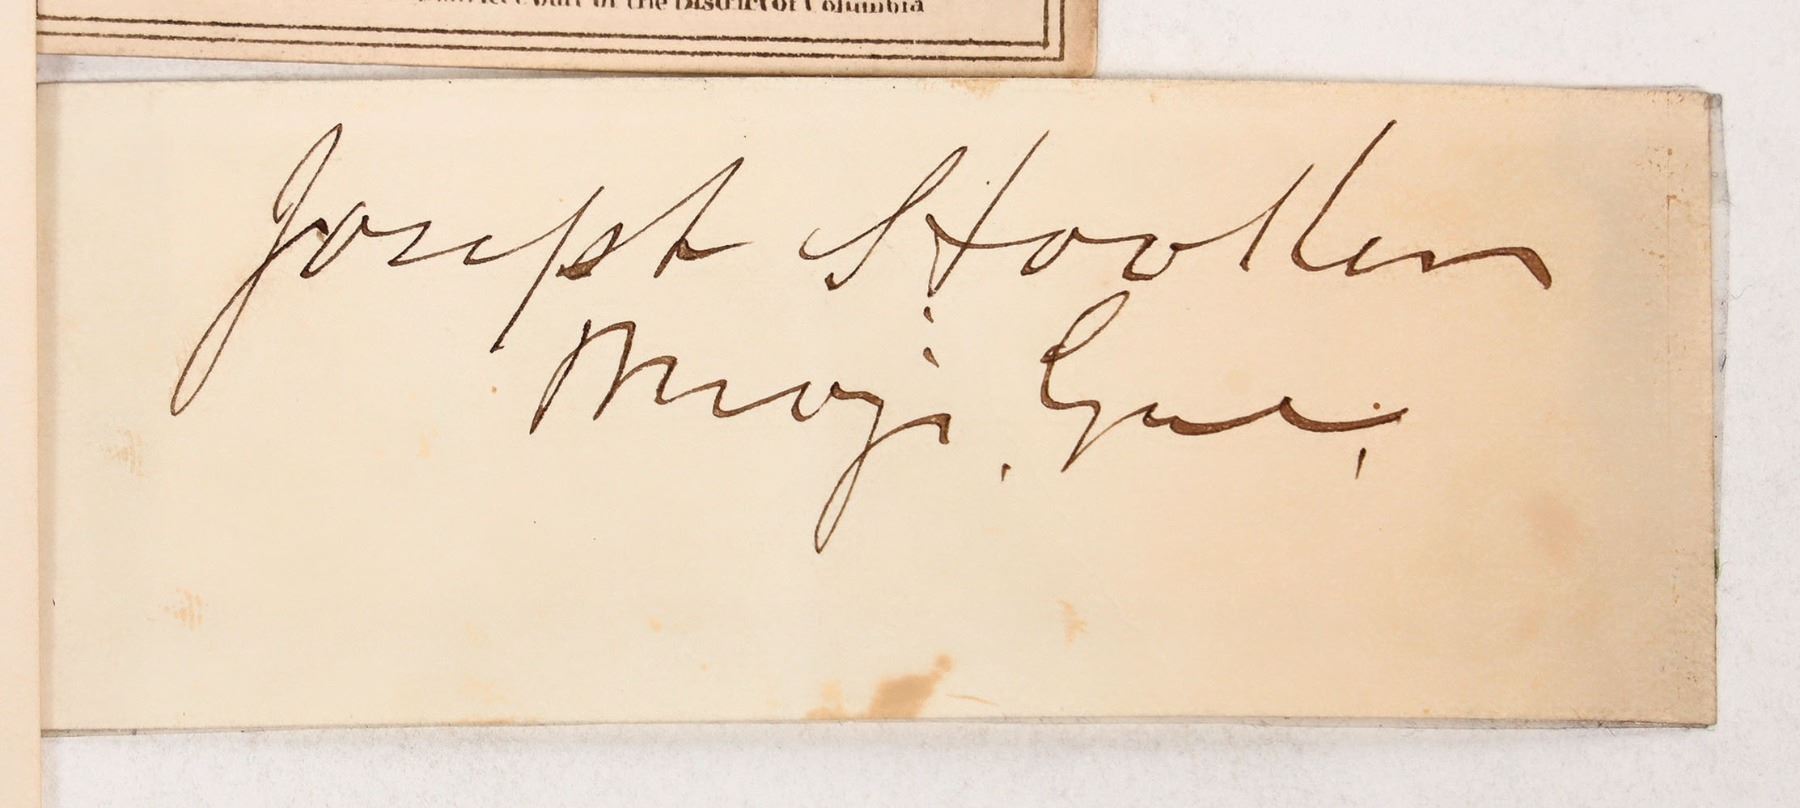 District Court of the District of Columbia
Joseph Hooker
Maj. Genl.